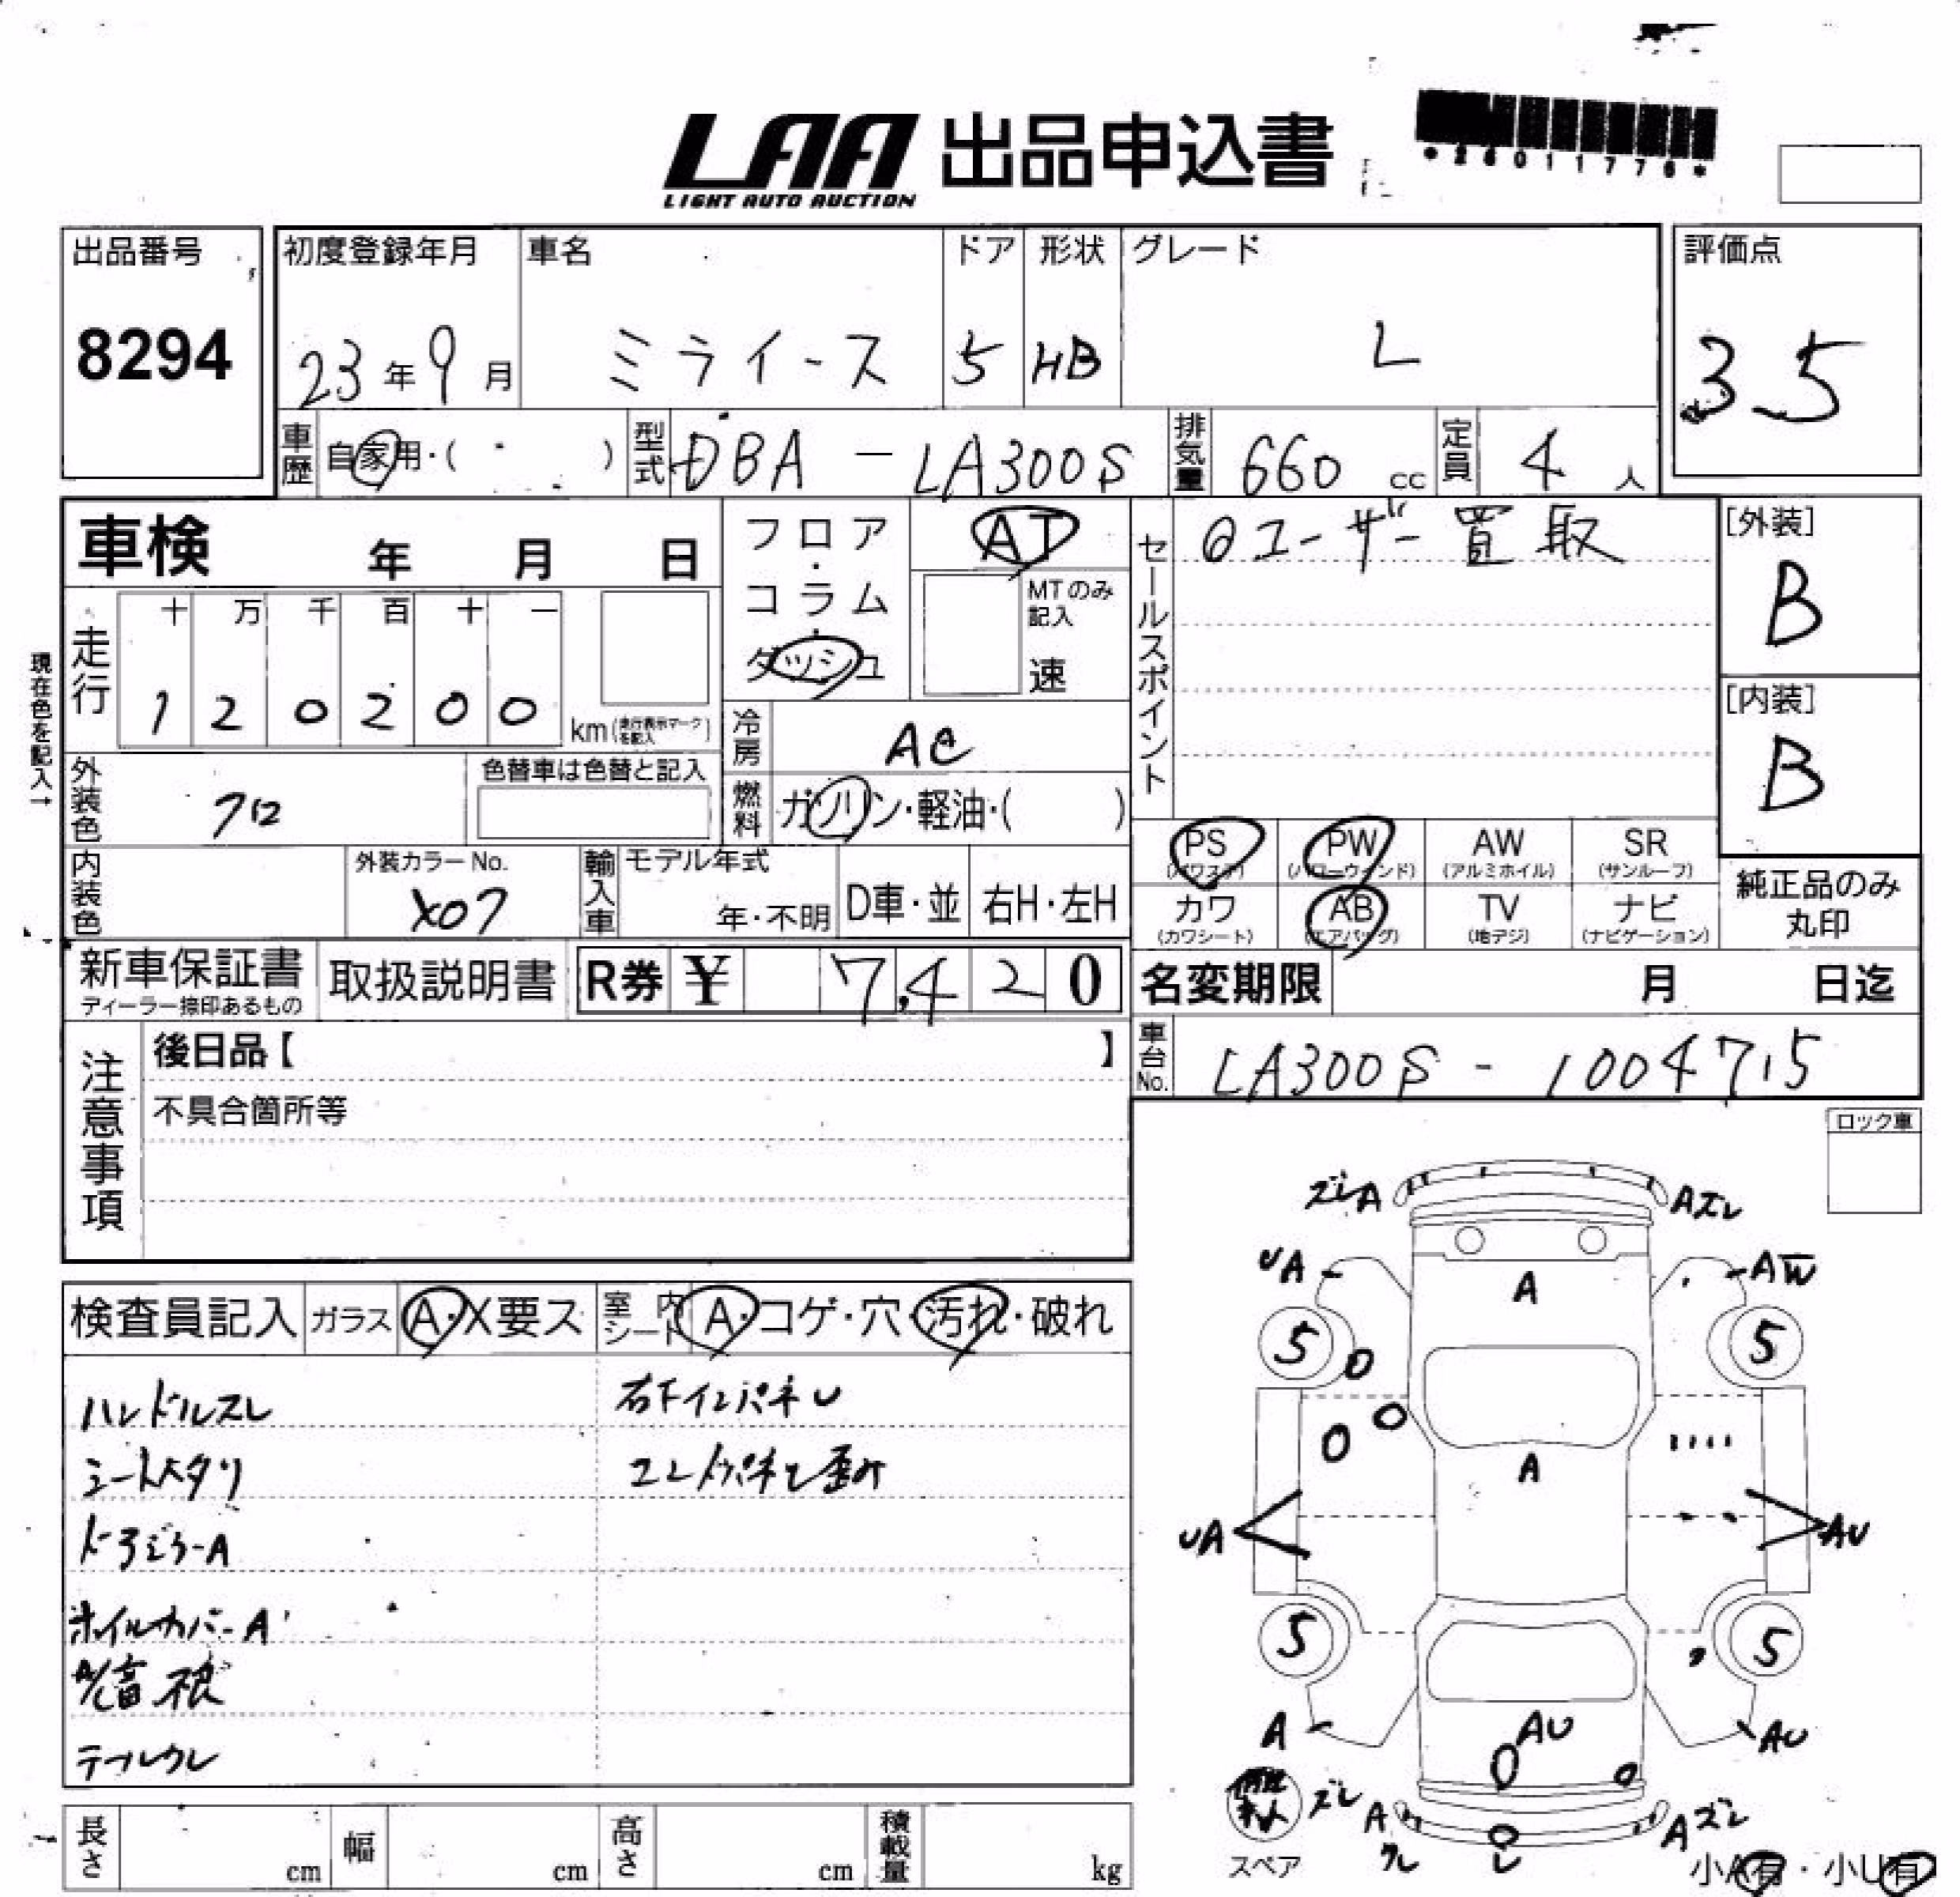 LAA 出品申込書
LIGHT AUTO AUCTION
出品番号 初度登録年月 車名 ドア 形状 グレード 評価点
8294 23年9月 ミライース 5 HB L 3.5
車歴 自家用・( ) 型式 DBA-LA300S 排気量 660cc 定員 4人
車検 年 月 日
フロア・コラム・ダッシュ
AT
MTのみ記入
速
セールスポイント
ユーザー買取
[外装]
B
[内装]
B
現在色を記入→
走行
十 万 千 百 十 一
1 2 0 2 0 0 km(走行表示マークを記入)
冷房 AC
外装色 クロ 色替車は色替と記入
燃料 ガソリン・軽油・( )
内装色 外装カラーNo. X07
輸入車 モデル年式 年・不明 D車・並 右H・左H
PS(パワステ) PW(パワーウィンド) AW(アルミホイル) SR(サンルーフ)
カワ(カワシート) AB(エアバッグ) TV(地デジ) ナビ(ナビゲーション)
純正品のみ丸印
新車保証書 ディーラー捺印あるもの 取扱説明書 R券 ¥ 7,420
名変期限 月 日迄
車台No. LA300S-1004715
注意事項
後日品【 】
不具合箇所等
ロック車
検査員記入 ガラス A・X要ス 室内シート A・コゲ・穴・汚れ・破れ
ハンドルスレ 右下インパネU
シートヘタリ コアパネと歪み
ドアミラーA
ホイルカバーA
ズレA Aズレ
UA AW
A
5 5
A
UA AU
5 5
A AU AU
ズレ A A ズレ
スペア
小A有・小U有
長さ cm 幅 cm 高さ cm 積載量 kg